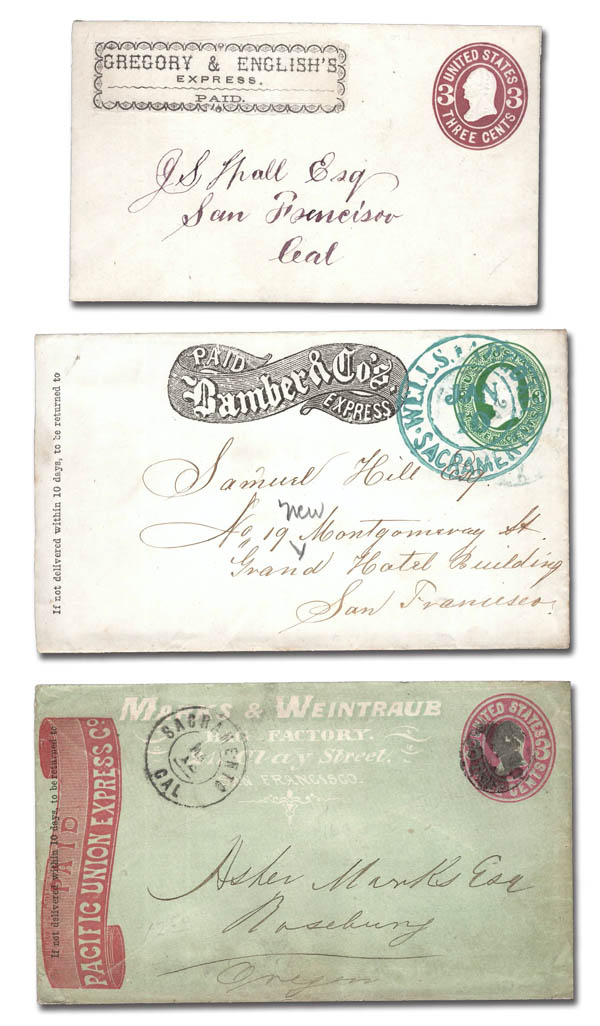 GREGORY & ENGLISH'S
EXPRESS.
PAID.
UNITED STATES
3 3
THREE CENTS
J S Spall Esq
San Francisco
Cal
If not delivered within 10 days, to be returned to
PAID
Bamber & Co's.
EXPRESS
WELLS.
SACRAMEN
Samuel Hill Esq.
new
No. 19 Montgomeray St.
Grand Hotel Building
San Francisco.
If not delivered within 10 days, to be returned to
PAID
PACIFIC UNION EXPRESS CO.
MARKS & WEINTRAUB
FACTORY.
Clay Street.
SAN FRANCISCO.
SACRAMENTO
CAL
UNITED STATES
CENTS
Asher Marks Esq
Roseburg
Oregon